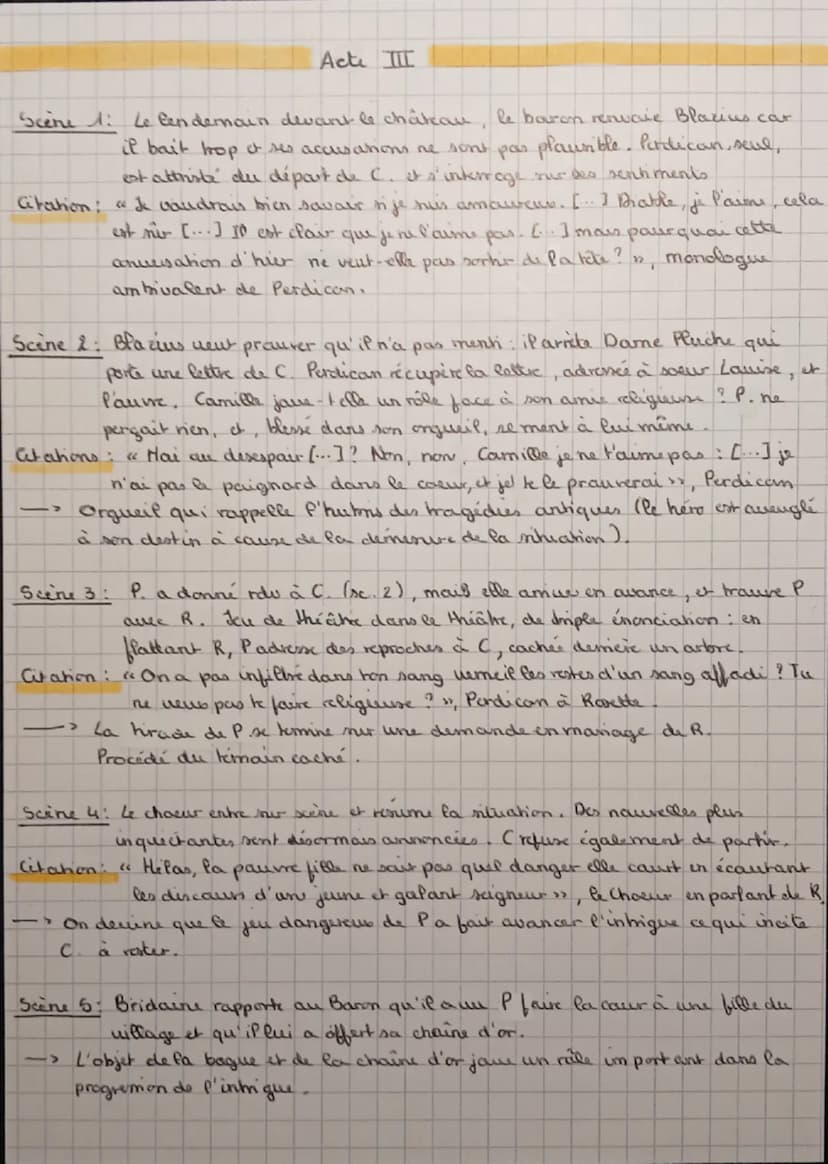 Acte III
Scène 1 : Le lendemain devant le château, le baron renvoie Blazius car
il boit trop et ses accusations ne sont pas plausible. Perdican, seul,
est attristé du départ de C. et s'interroge sur ses sentiments
Citation : « Je voudrais bien savoir si je suis amoureux. [...] Diable, je l'aime, cela
est sûr [...] Il est clair que je ne l'aime pas. [...] mais pourquoi cette
conversation d'hier ne veut-elle pas sortir de la tête ? », monologue
ambivalent de Perdican.
Scène 2 : Blazius veut prouver qu'il n'a pas menti : il arrête Dame Pluche qui
porte une lettre de C. Perdican récupère la lettre, adressée à soeur Louise, et
l'ouvre. Camille joue-t-elle un rôle face à son amie religieuse ? P. ne
perçait rien, et, blessé dans son orgueil, se ment à lui même.
Citations : « Moi au désespoir [...] ? Non, non, Camille je ne t'aime pas : [...] je
n'ai pas le poignard dans le coeur, et je te le prouverai », Perdican
—> Orgueil qui rappelle l'hubris des tragédies antiques (le héro est aveuglé
à son destin à cause de la démesure de la situation).
Scène 3 : P. a donné rdv à C. (sc. 2), mais elle arrive en avance, et trouve P
avec R. Jeu de théâtre dans le théâtre, de triple énonciation : en
flattant R, P adresse des reproches à C, cachée derrière un arbre.
Citation : « On a pas infiltré dans ton sang vermeil les restes d'un sang affadi ? Tu
ne veux pas te faire religieuse ? », Perdican à Rosette.
—> La tirade de P. se termine sur une demande en mariage de R.
Procédé du témoin caché.
Scène 4 : Le choeur entre sur scène et résume la situation. Des nouvelles plus
inquiétantes sont désormais annoncées. C refuse également de partir.
Citation : « Hélas, la pauvre fille ne sait pas quel danger elle court en écoutant
les discours d'un jeune et galant seigneur », le Choeur en parlant de R.
—> On devine que le jeu dangereux de P a fait avancer l'intrigue ce qui incite
C. à rester.
Scène 5 : Bridaine rapporte au Baron qu'il a vu P faire la cour à une fille du
village et qu'il lui a offert sa chaîne d'or.
—> L'objet de la bague et de la chaîne d'or joue un rôle important dans la
progression de l'intrigue.